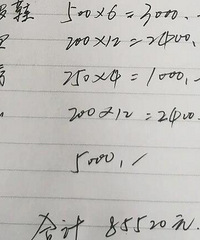 鞋 500×6=3000.-
200×12=2400.
250×4=1000,-
200×12=2400.
5000,-
合计 85520元.